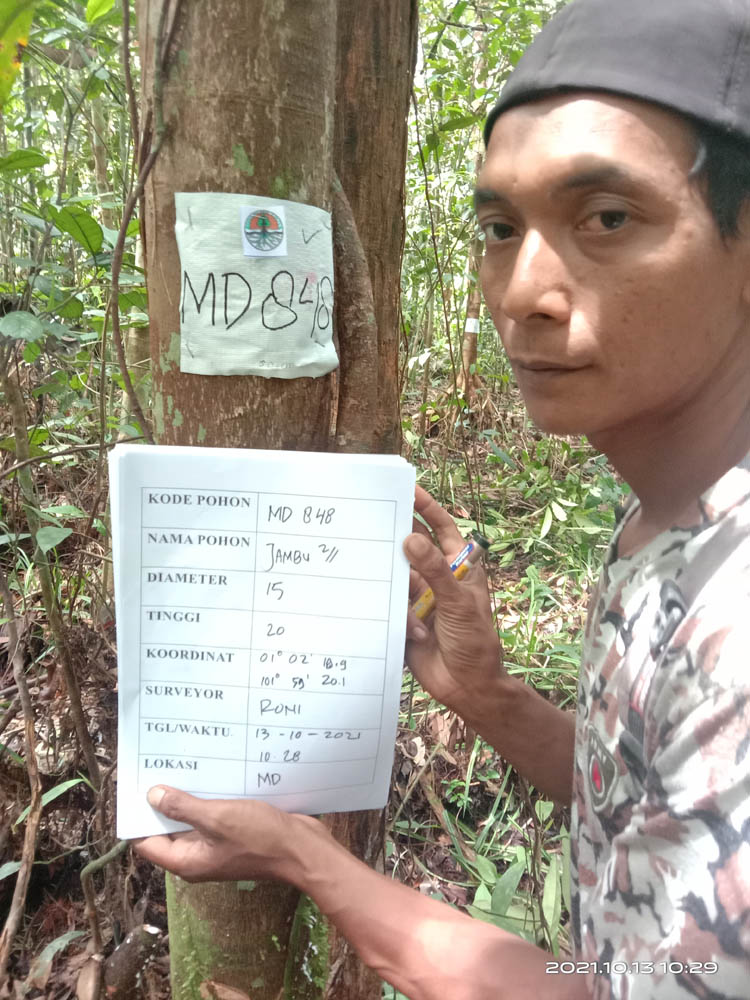 MD 848
KODE POHON MD 848
NAMA POHON JAMBU 2//
DIAMETER 15
TINGGI 20
KOORDINAT 01° 02' 18.9
101° 59' 20.1
SURVEYOR RONI
TGL/WAKTU. 13-10-2021
10.28
LOKASI MD
2021.10.13 10:29